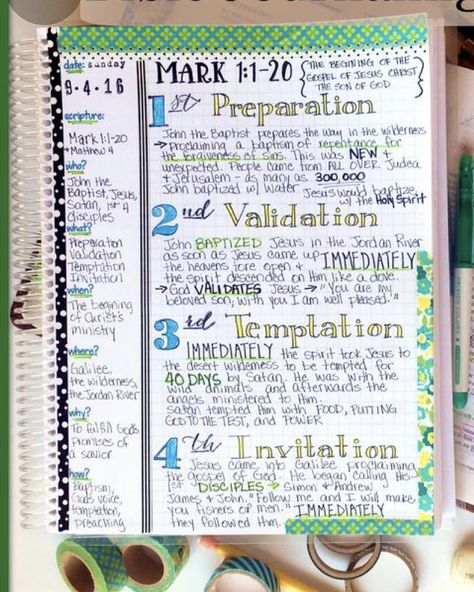 date: sunday
9·4·16
scripture:
Mark 1:1-20
+ Matthew 4
who?
John the
Baptist, Jesus,
Satan, 1st 4
disciples
what?
Preparation
Validation
Temptation
Invitation
when?
The begining
of Christ's
ministry
where?
Galilee,
the wilderness,
the Jordan River
why?
To fulfill Gods
promises of
a savior
how?
Baptism,
God's voice,
temptation,
preaching
MARK 1:1-20
{THE BEGINING OF THE
GOSPEL OF JESUS CHRIST
THE SON OF GOD}
1st Preparation
John the Baptist prepares the way in the wilderness
→ Proclaiming a baptism of repentance for
the forgiveness of sins. This was NEW +
unexpected. People came from ALL OVER Judea
+ Jerusalem → as many as 300,000
John baptized w/ Water Jesus would baptize
w/ the Holy Spirit
2nd Validation
John BAPTIZED Jesus in the Jordan River
as soon as Jesus came up IMMEDIATELY
the heavens tore open +
the spirit descended on Him like a dove.
→ God VALIDATES Jesus → "You are my
beloved son, with you I am well pleased."
3rd Temptation
IMMEDIATELY the spirit took Jesus to
the desert wilderness to be tempted for
40 DAYS by Satan. He was with the
wild animals and afterwards the
angels ministered to Him.
Satan tempted Him with FOOD, PUTTING
GOD TO THE TEST, and POWER
4th Invitation
Jesus came into Galilee proclaiming
the gospel of God. He began calling His
1st DISCIPLES → Simon + Andrew +
James + John. "Follow me and I will make
you fishers of men." IMMEDIATELY
they followed Him.